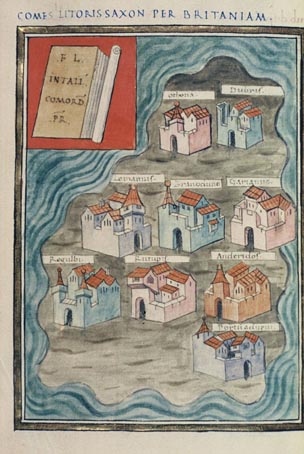 COMES LITORIS SAXON PER BRITANIAM.
FL.
INTALL
COMORD
PR.
othona.
Dubris.
Lemannis.
Branoduno
Garianno.
Regulbi
Rutupis
Anderidos.
Portūadurni